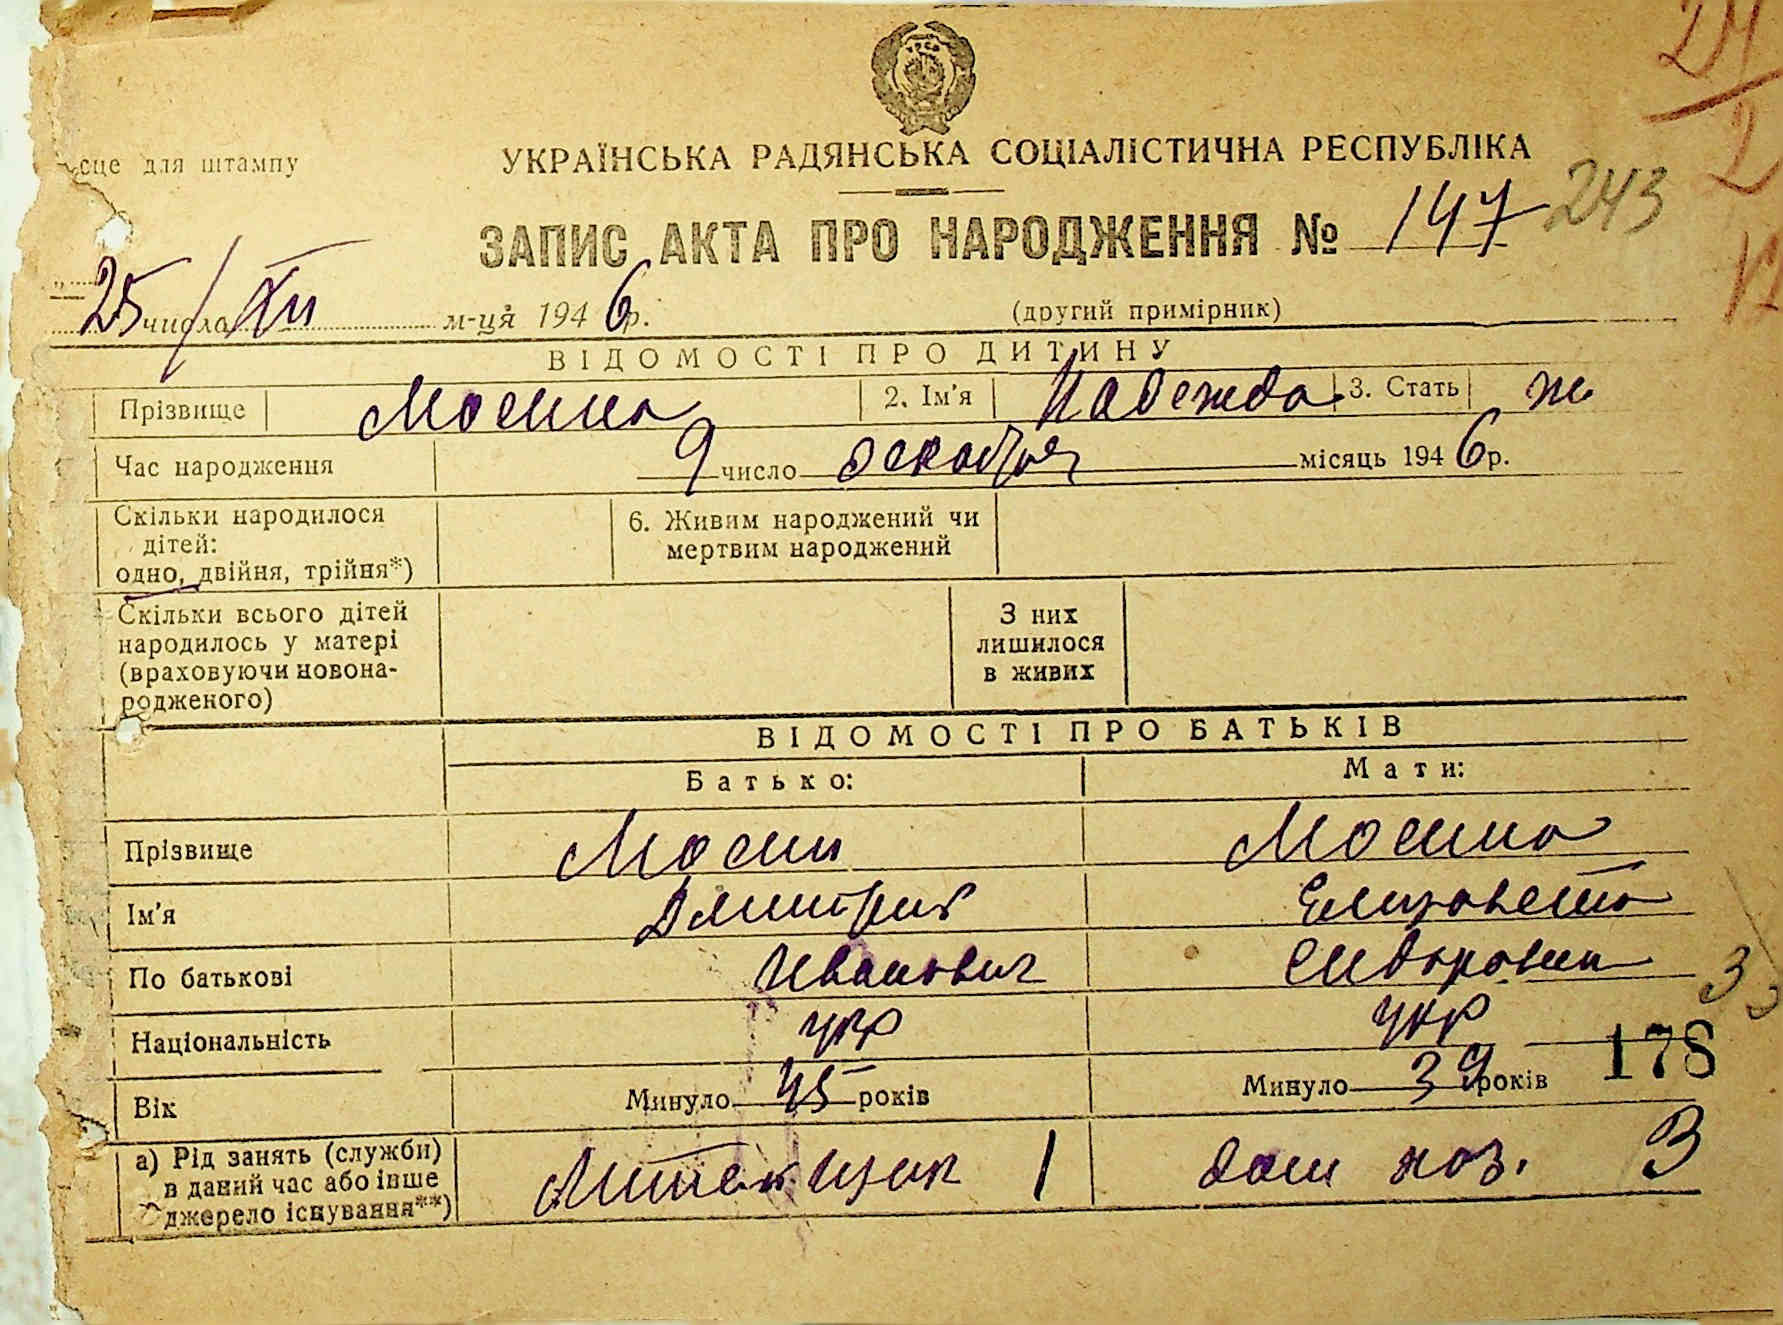 УРСР
УКРАЇНСЬКА РАДЯНСЬКА СОЦІАЛІСТИЧНА РЕСПУБЛІКА
сце для штампу
ЗАПИС АКТА ПРО НАРОДЖЕННЯ № 147 243
25 числа XII м-ця 1946 р.
(другий примірник)
ВІДОМОСТІ ПРО ДИТИНУ
Прізвище Мосина 2. Ім'я Надежда 3. Стать ж
Час народження 9 число декабря місяць 1946 р.
Скільки народилося
дітей:
одно, двійня, трійня*)
6. Живим народжений чи
мертвим народжений
Скільки всього дітей
народилось у матері
(враховуючи новона-
родженого)
З них
лишилося
в живих
ВІДОМОСТІ ПРО БАТЬКІВ
Батько: Мати:
Прізвище Мосин Мосина
Ім'я Дмитрий Елизавета
По батькові Иванович Сидоровна
Національність укр укр
178
Вік Минуло 45 років Минуло 39 років
а) Рід занять (служби)
в даний час або інше
джерело існування**)
1 дом хоз. 3